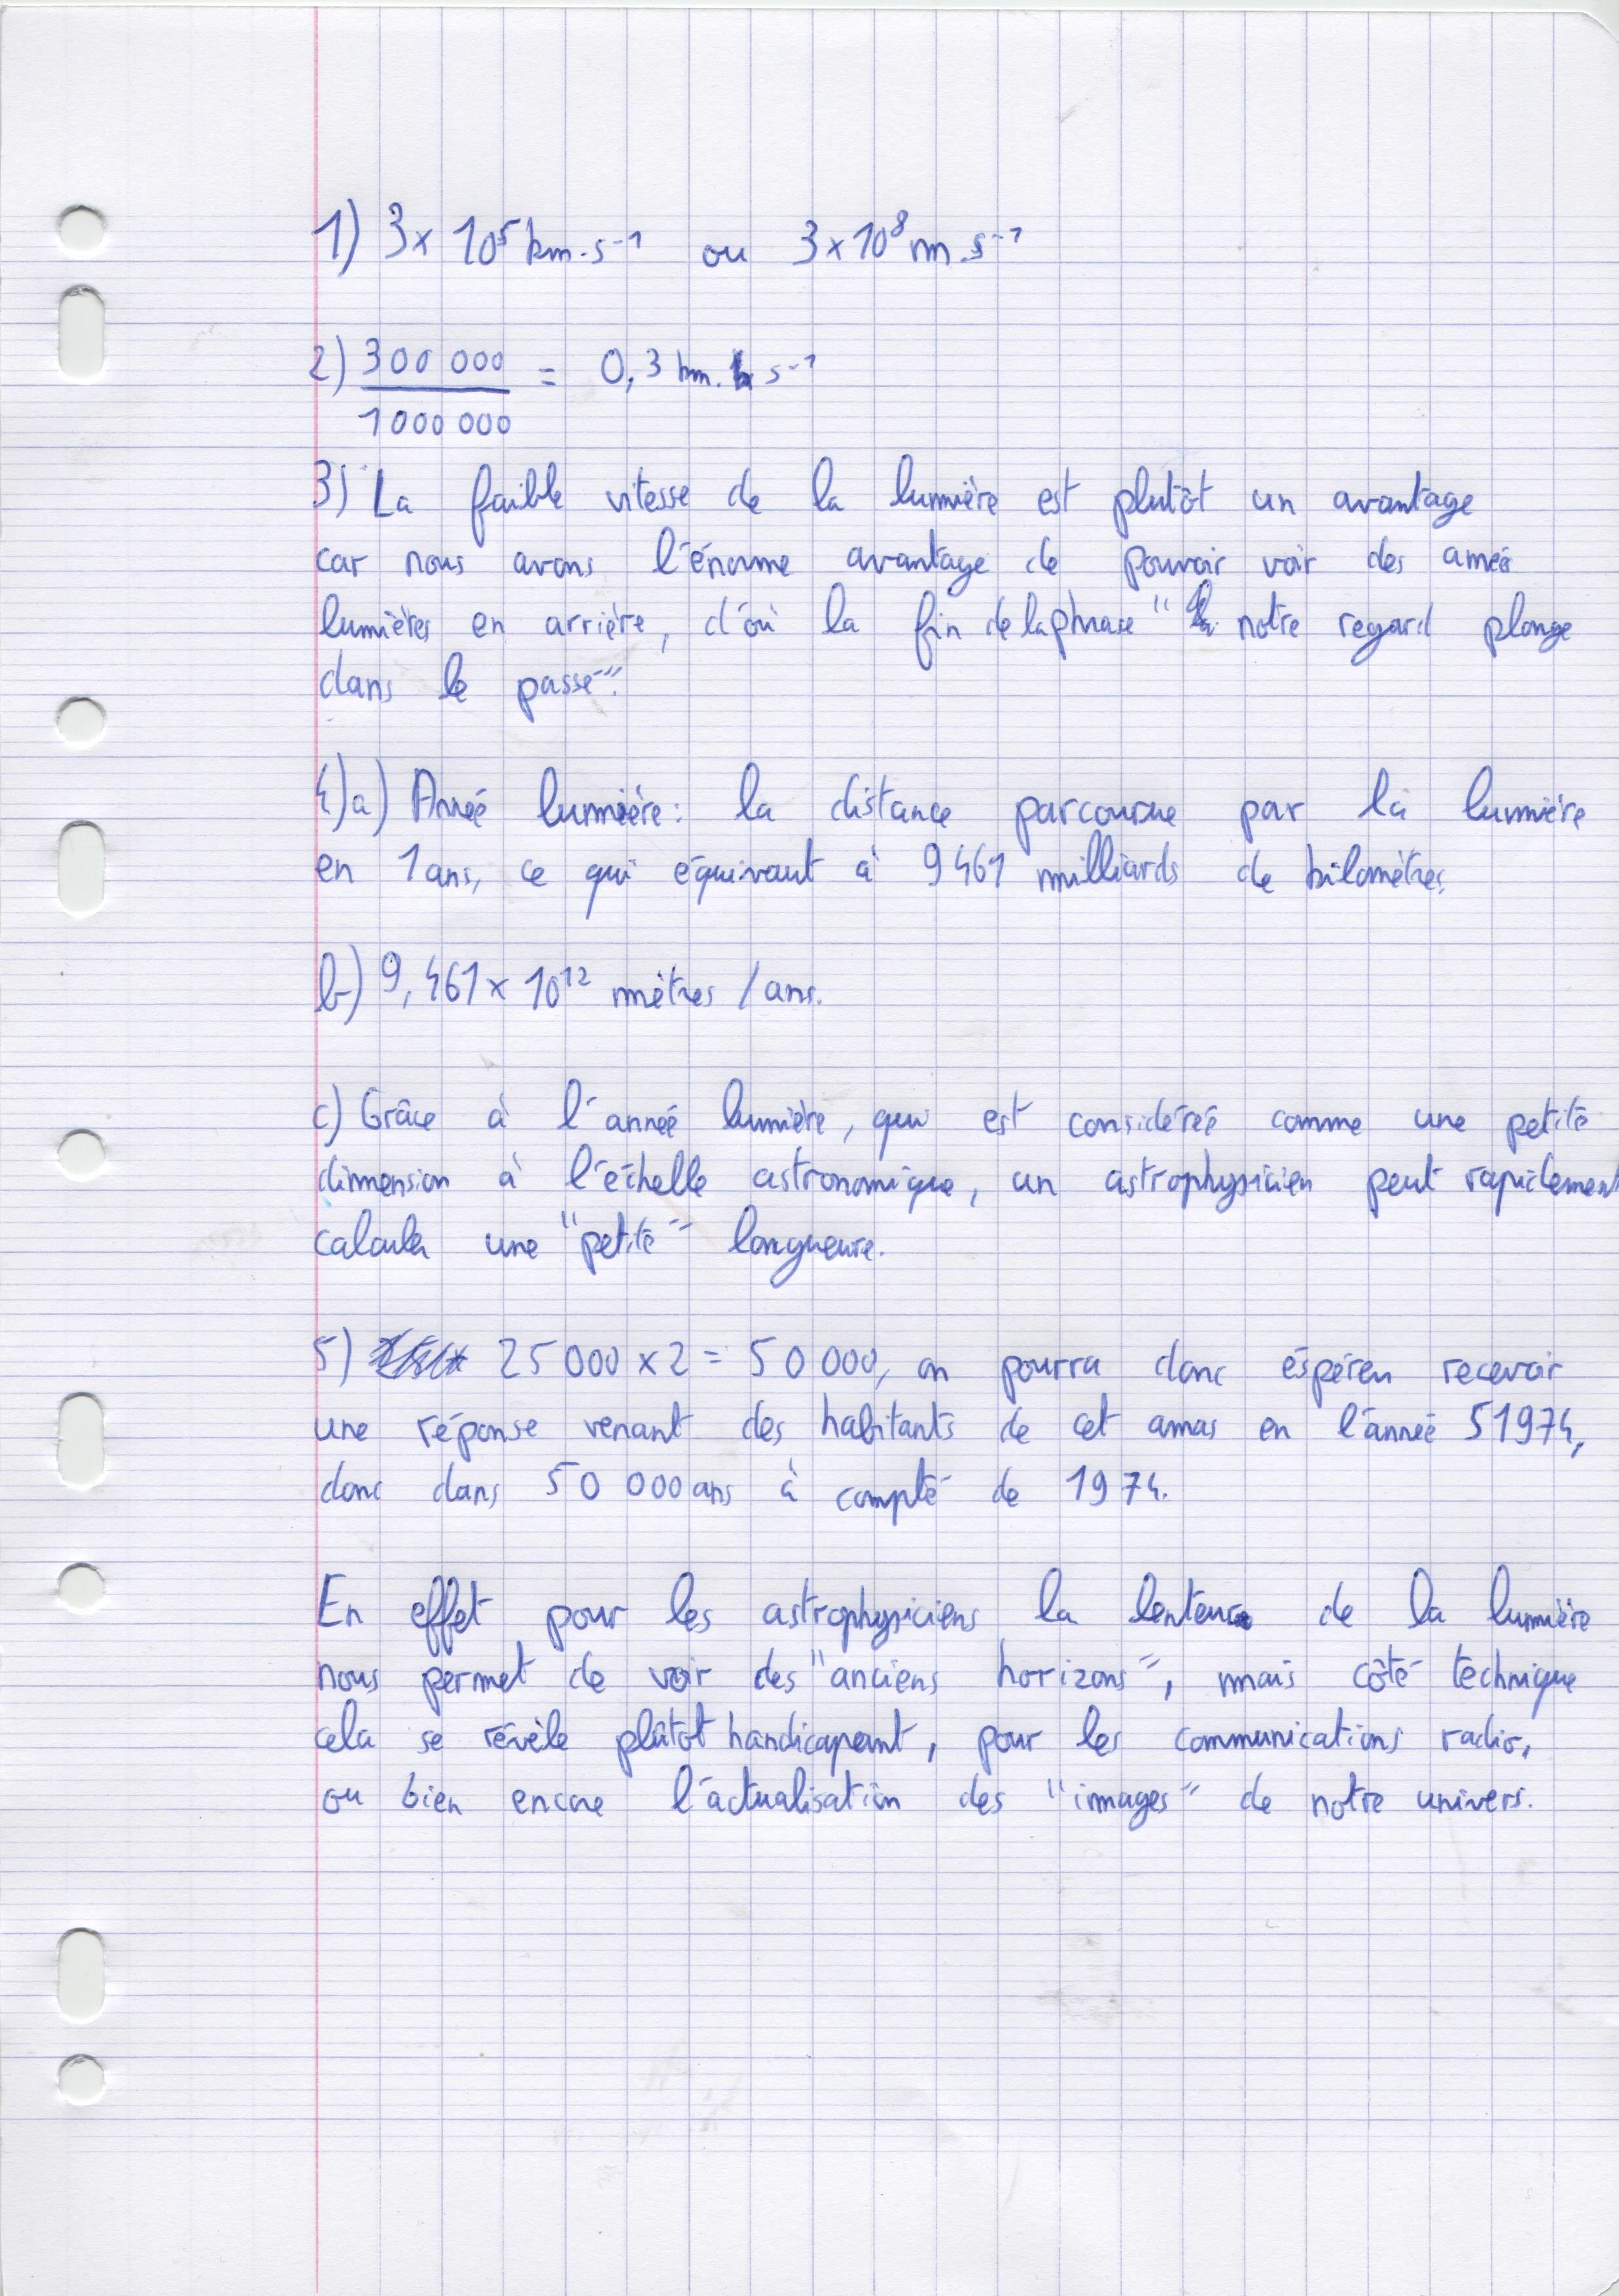 1) 3 x 10⁵ km.s⁻¹ ou 3 x 10⁸ m.s⁻¹
2) 300 000 / 1000 000 = 0,3 km. s⁻¹
3) La faible vitesse de la lumière est plutôt un avantage
car nous avons l'énorme avantage de pouvoir voir des année
lumières en arrière, d'où la fin de la phrase " notre regard plonge
dans le passé".
4)a) Année lumière : la distance parcourue par la lumière
en 1 ans, ce qui équivaut à 9 461 milliards de kilomètres.
b) 9,461 x 10¹² mètres / ans.
c) Grâce à l'année lumière, qui est considérée comme une petite
dimension à l'échelle astronomique, un astrophysicien peut rapidement
calculer une "petite" longueure.
5) 25 000 x 2 = 50 000, on pourra donc éspérer recevoir
une réponse venant des habitants de cet amas en l'année 51974,
donc dans 50 000 ans à compté de 1974.
En effet pour les astrophysiciens la lenteur de la lumière
nous permet de voir des "anciens horizons", mais côté technique
cela se révèle plûtot handicapant, pour les communications radio,
ou bien encore l'actualisation des "images" de notre univers.